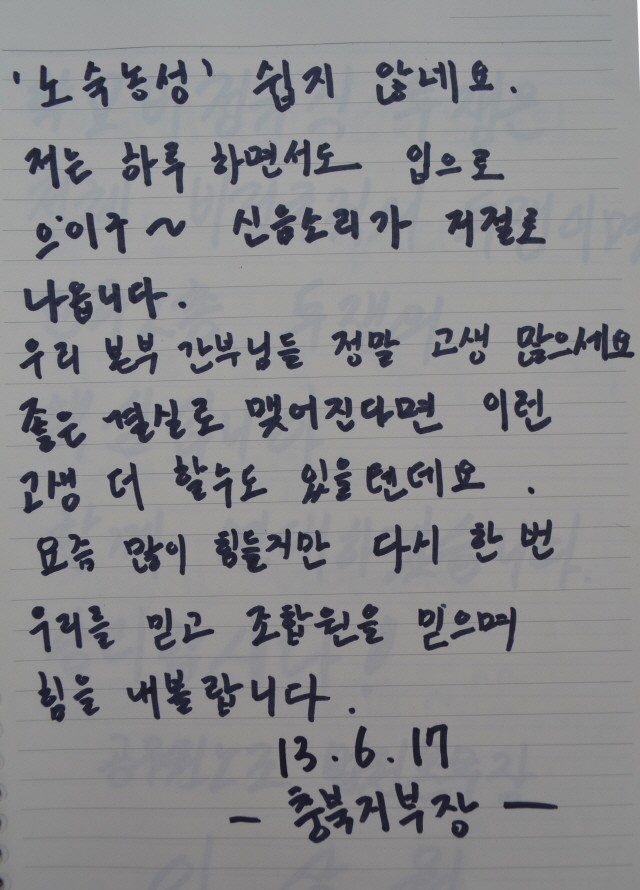 '노숙농성' 쉽지 않네요.
저는 하루 하면서도 입으로
으이구~ 신음소리가 저절로
나옵니다.
우리 본부 간부님들 정말 고생 많으세요
좋은 결실로 맺어진다면 이런
고생 더 할수도 있을텐데요.
요즘 많이 힘들지만 다시 한 번
우리를 믿고 조합원을 믿으며
힘을 내볼랍니다.
13.6.17
- 충북지부장 -